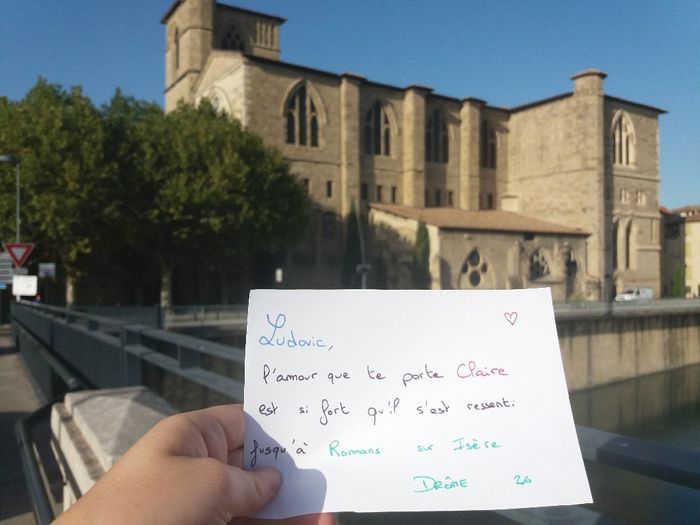 Ludovic,
l'amour que te porte Claire
est si fort qu'il s'est ressenti
jusqu'à Romans sur Isère
Drôme 26